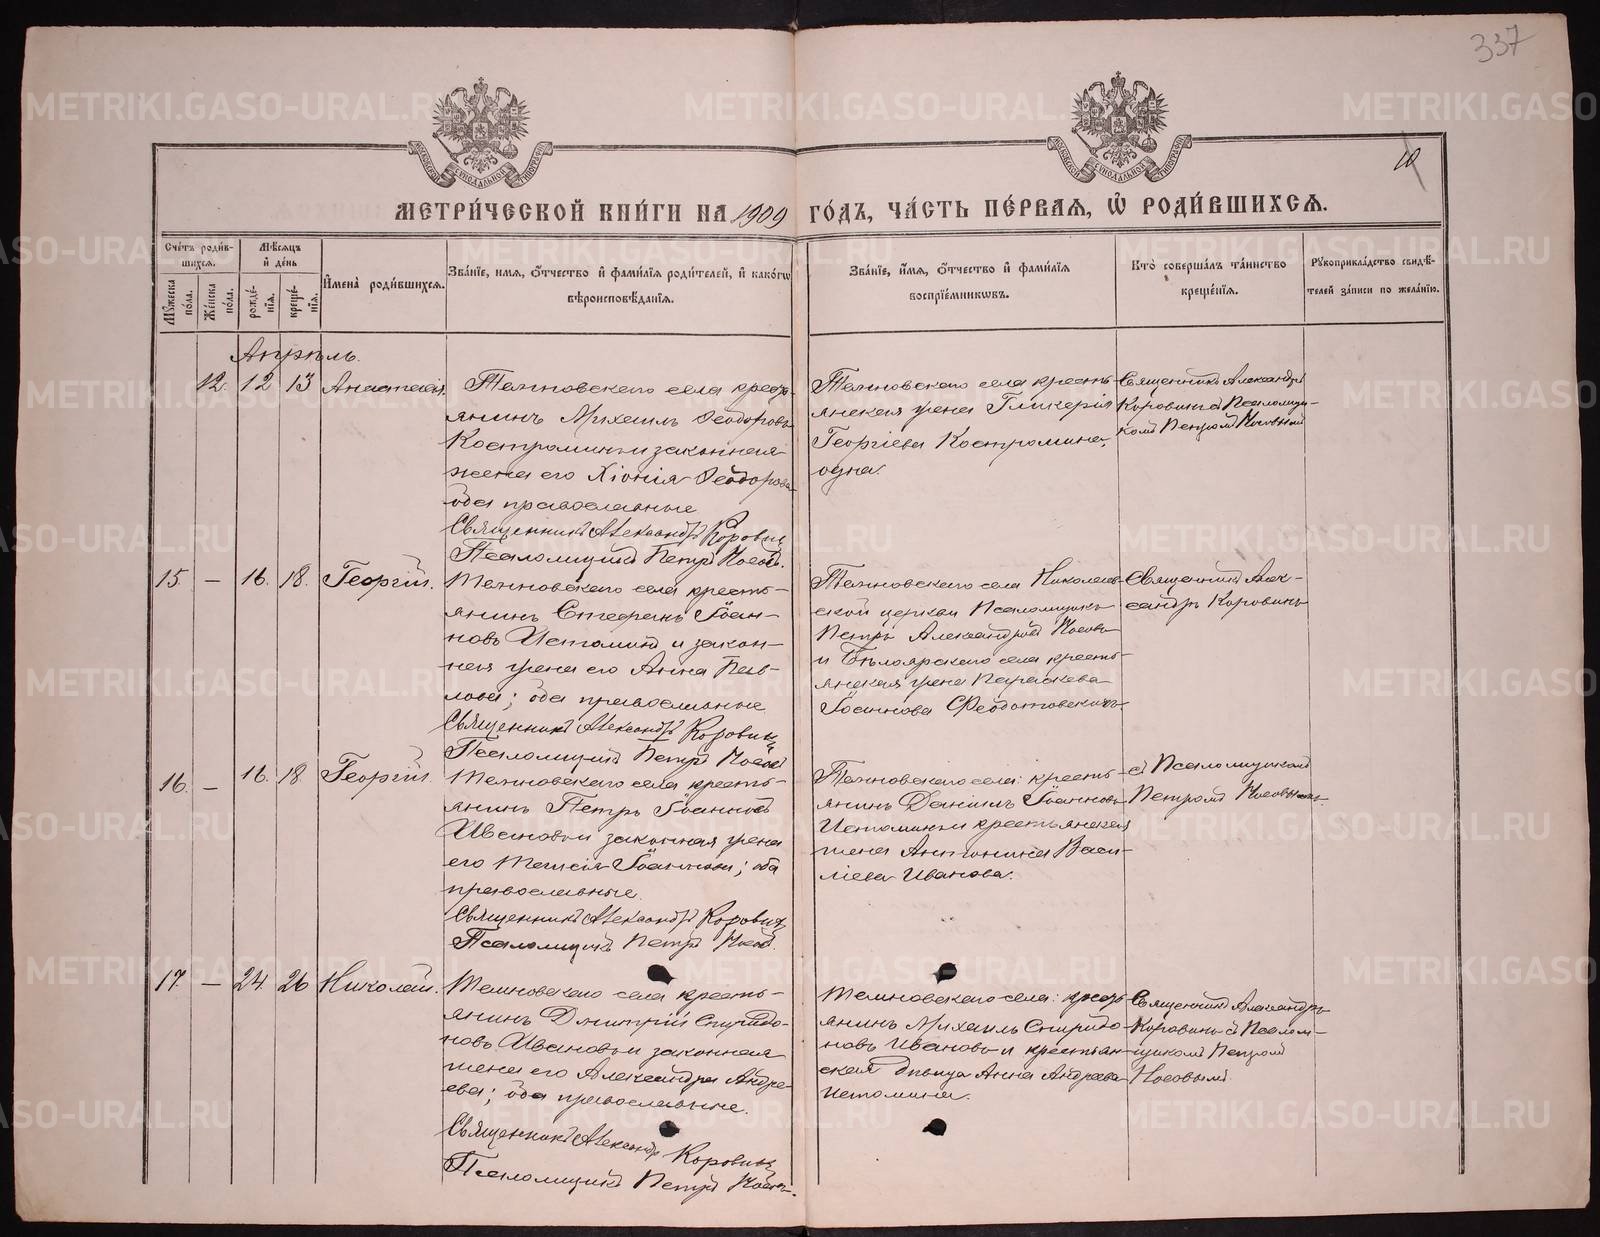 337
10
МЕТРИ́ЧЕСКОЙ КНИ́ГИ НА 1909 ГО́ДЪ, ЧА́СТЬ ПЕ́РВАЯ, Ѽ РОДИ́ВШИХСЯ.
Сче́тъ роди́в-
шихся.
Мѣсяцъ
и҆ де́нь
Мꙋ́жеска по́ла.
Же́нска по́ла.
рожде́-
нїя.
креще́-
нїя.
И҆мена̀ роди́вшихся.
Зва́нїе, и҆мя, ѻ҆́тчество и҆ фами́лїя роди́телей, и҆ како́гѡ
вѣроисповѣ́данїя.
Зва́нїе, и҆́мя, ѻ҆́тчество и҆ фами́лїя
воспрїе́мникѡвъ.
Кто̀ соверша́лъ та́инство
креще́нїя.
Рꙋкоприкла́дство свидѣ́-
телей за́писи по жела́нїю.
Апрѣль.
12. 12 13 Анастасія.
Темновскаго села кресть-
янинъ Михаилъ Ѳеодоровъ
Костроминъ и законная
жена его Хіонія Ѳеодорова
оба православные
Священникъ Александръ Коровинъ
Псаломщикъ Петръ Носовъ.
Темновскаго села кресть-
янская жена Гликерія
Георгіева Костромина,
одна.
Священникъ Александръ
Коровинъ съ Псаломщи-
комъ Петромъ Носовымъ
15. — 16. 18. Георгій.
Темновскаго села кресть-
янинъ Стефанъ Іоан-
новъ Истоминъ и закон-
ная жена его Анна Пав-
лова; оба православные
Священникъ Александръ Коровинъ
Псаломщикъ Петръ Носовъ
Темновскаго села Николаев-
ской церкви Псаломщикъ
Петръ Александровъ Носовъ
и Бѣлоярскаго села кресть-
янская жена Параскева
Іоаннова Ѳеодотовскихъ
Священникъ Алек-
сандръ Коровинъ
16. — 16. 18. Георгій.
Темновскаго села кресть-
янинъ Петръ Іоанновъ
Ивановъ и законная жена
его Таисія Іоаннова; оба
православные.
Священникъ Александръ Коровинъ
Псаломщикъ Петръ Носовъ.
Темновскаго села: кресть-
янинъ Даніилъ Іоанновъ
Истоминъ и крестьянская
жена Антонина Васи-
ліева Иванова.
съ Псаломщикомъ
Петромъ Носовымъ
17. — 24. 26 Николай.
Темновскаго села кресть-
янинъ Димитрій Спиридо-
новъ Ивановъ и законная
жена его Александра Андре-
ева; оба православные.
Священникъ Александръ Коровинъ
Псаломщикъ Петръ Носовъ.
Темновскаго села: кресть-
янинъ Михаилъ Спиридо-
новъ Ивановъ и крестьян-
ская дѣвица Анна Андреева
Истомина.
Священникъ Александръ
Коровинъ съ Псалом-
щикомъ Петромъ
Носовымъ.
METRIKI.GASO-URAL.RU